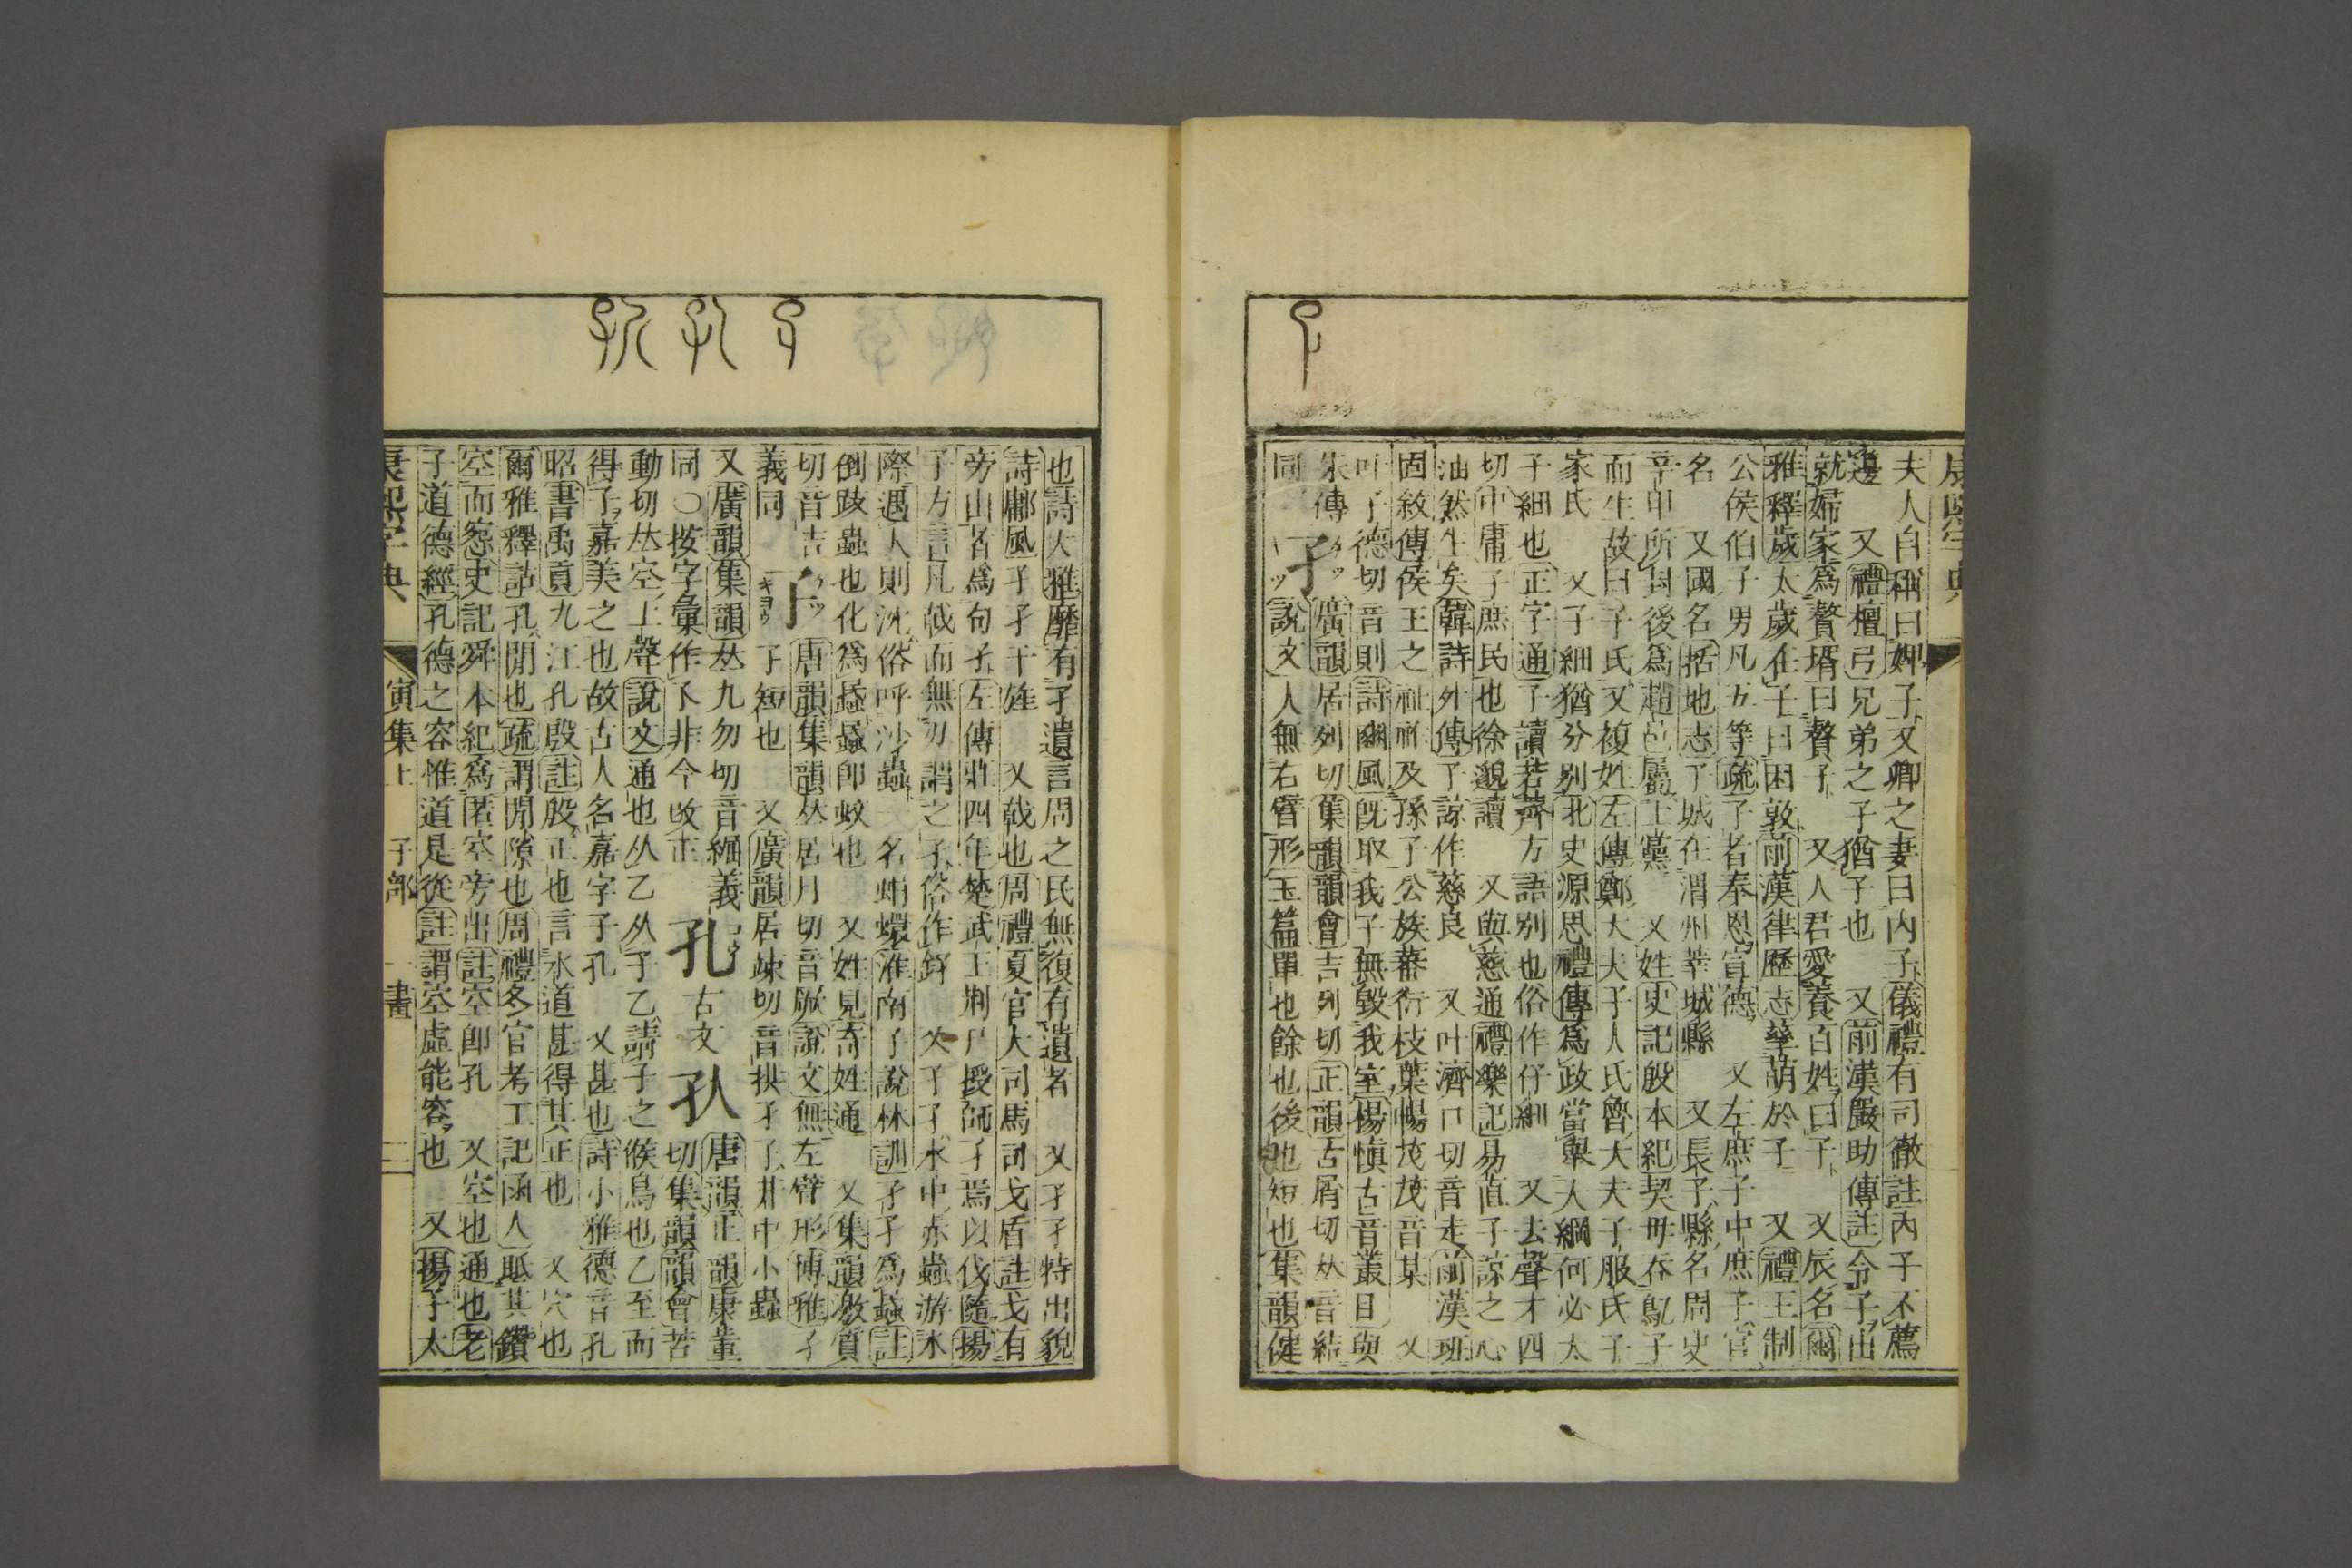 康熙字典
夫人自稱曰婢子又卿之妻曰內子儀禮有司徹註內子不薦
籩 又禮檀弓兄弟之子猶子也 又前漢嚴助傳註令子出
就婦家爲贅壻曰贅子 又人君愛養百姓曰子 又辰名爾
雅釋歲太歲在子曰困敦前漢律歷志孳萌於子 又禮王制
公侯伯子男凡五等疏子者奉恩宣德 又左庶子中庶子官
名 又國名括地志子城在渭州莘城縣 又長子縣名周史
辛甲所封後爲趙邑屬上黨 又姓史記殷本紀契母吞鳦子
而生故曰子氏又複姓左傳鄭大夫子人氏魯大夫子服氏子
家氏 又子細猶分別北史源思禮傳爲政當舉大綱何必太
子細也正字通子讀若薺方語別也俗作仔細 又去聲才四
切中庸子庶民也徐邈讀 又與慈通禮樂記易直子諒之心
油然生矣韓詩外傳子諒作慈良 又叶濟口切音走前漢班
固敘傳侯王之祉祚及孫子公族蕃衍枝葉暢茂茂音某 又
叶子德切音則詩豳風旣取我子無毀我室楊愼古音叢目與
朱傳
同 孑 廣韻居列切集韻韻會吉列切正韻古屑切𠀤音結
說文人無右臂形玉篇單也餘也後也短也集韻健
也詩大雅靡有孑遺言周之民無復有遺者 又孑孑特出貌
詩鄘風孑孑干旄 又戟也周禮夏官大司馬司戈盾註戈有
旁出者爲句孑左傳莊四年楚武王荆尸授師孑焉以伐隨揚
子方言凡戟而無刃謂之孑俗作釨 又孑孓水中赤蟲游水
際遇人則沈俗呼沙蟲 名蛣蟩淮南子說林訓孑孓爲蟁註
倒跂蟲也化爲蟁蟁卽蚊也 又姓見奇姓通 又集韻激質
切音吉
義同 孓 唐韻集韻𠀤居月切音厥說文無左臂形博雅孑
キヨウ 孓短也 又廣韻居竦切音拱孑孓井中小蟲
又廣韻集韻𠀤九勿切音䋄義
同○按字彙作孓非今改正 孔 古文 𡥆 唐韻正韻康董
切集韻韻會苦
動切𠀤空上聲說文通也从乙从子乙請子之候鳥也乙至而
得子嘉美之也故古人名嘉字子孔 又甚也詩小雅德音孔
昭書禹貢九江孔殷註殷正也言水道甚得其正也 又穴也
爾雅釋詁孔閒也疏謂閒隙也周禮冬官考工記函人眡其鑽
空而惌史記舜本紀爲匿空旁出註空卽孔 又空也通也老
子道德經孔德之容惟道是從註謂空虛能容也 又揚子太
康熙字典 寅集上 子部 一畫 三